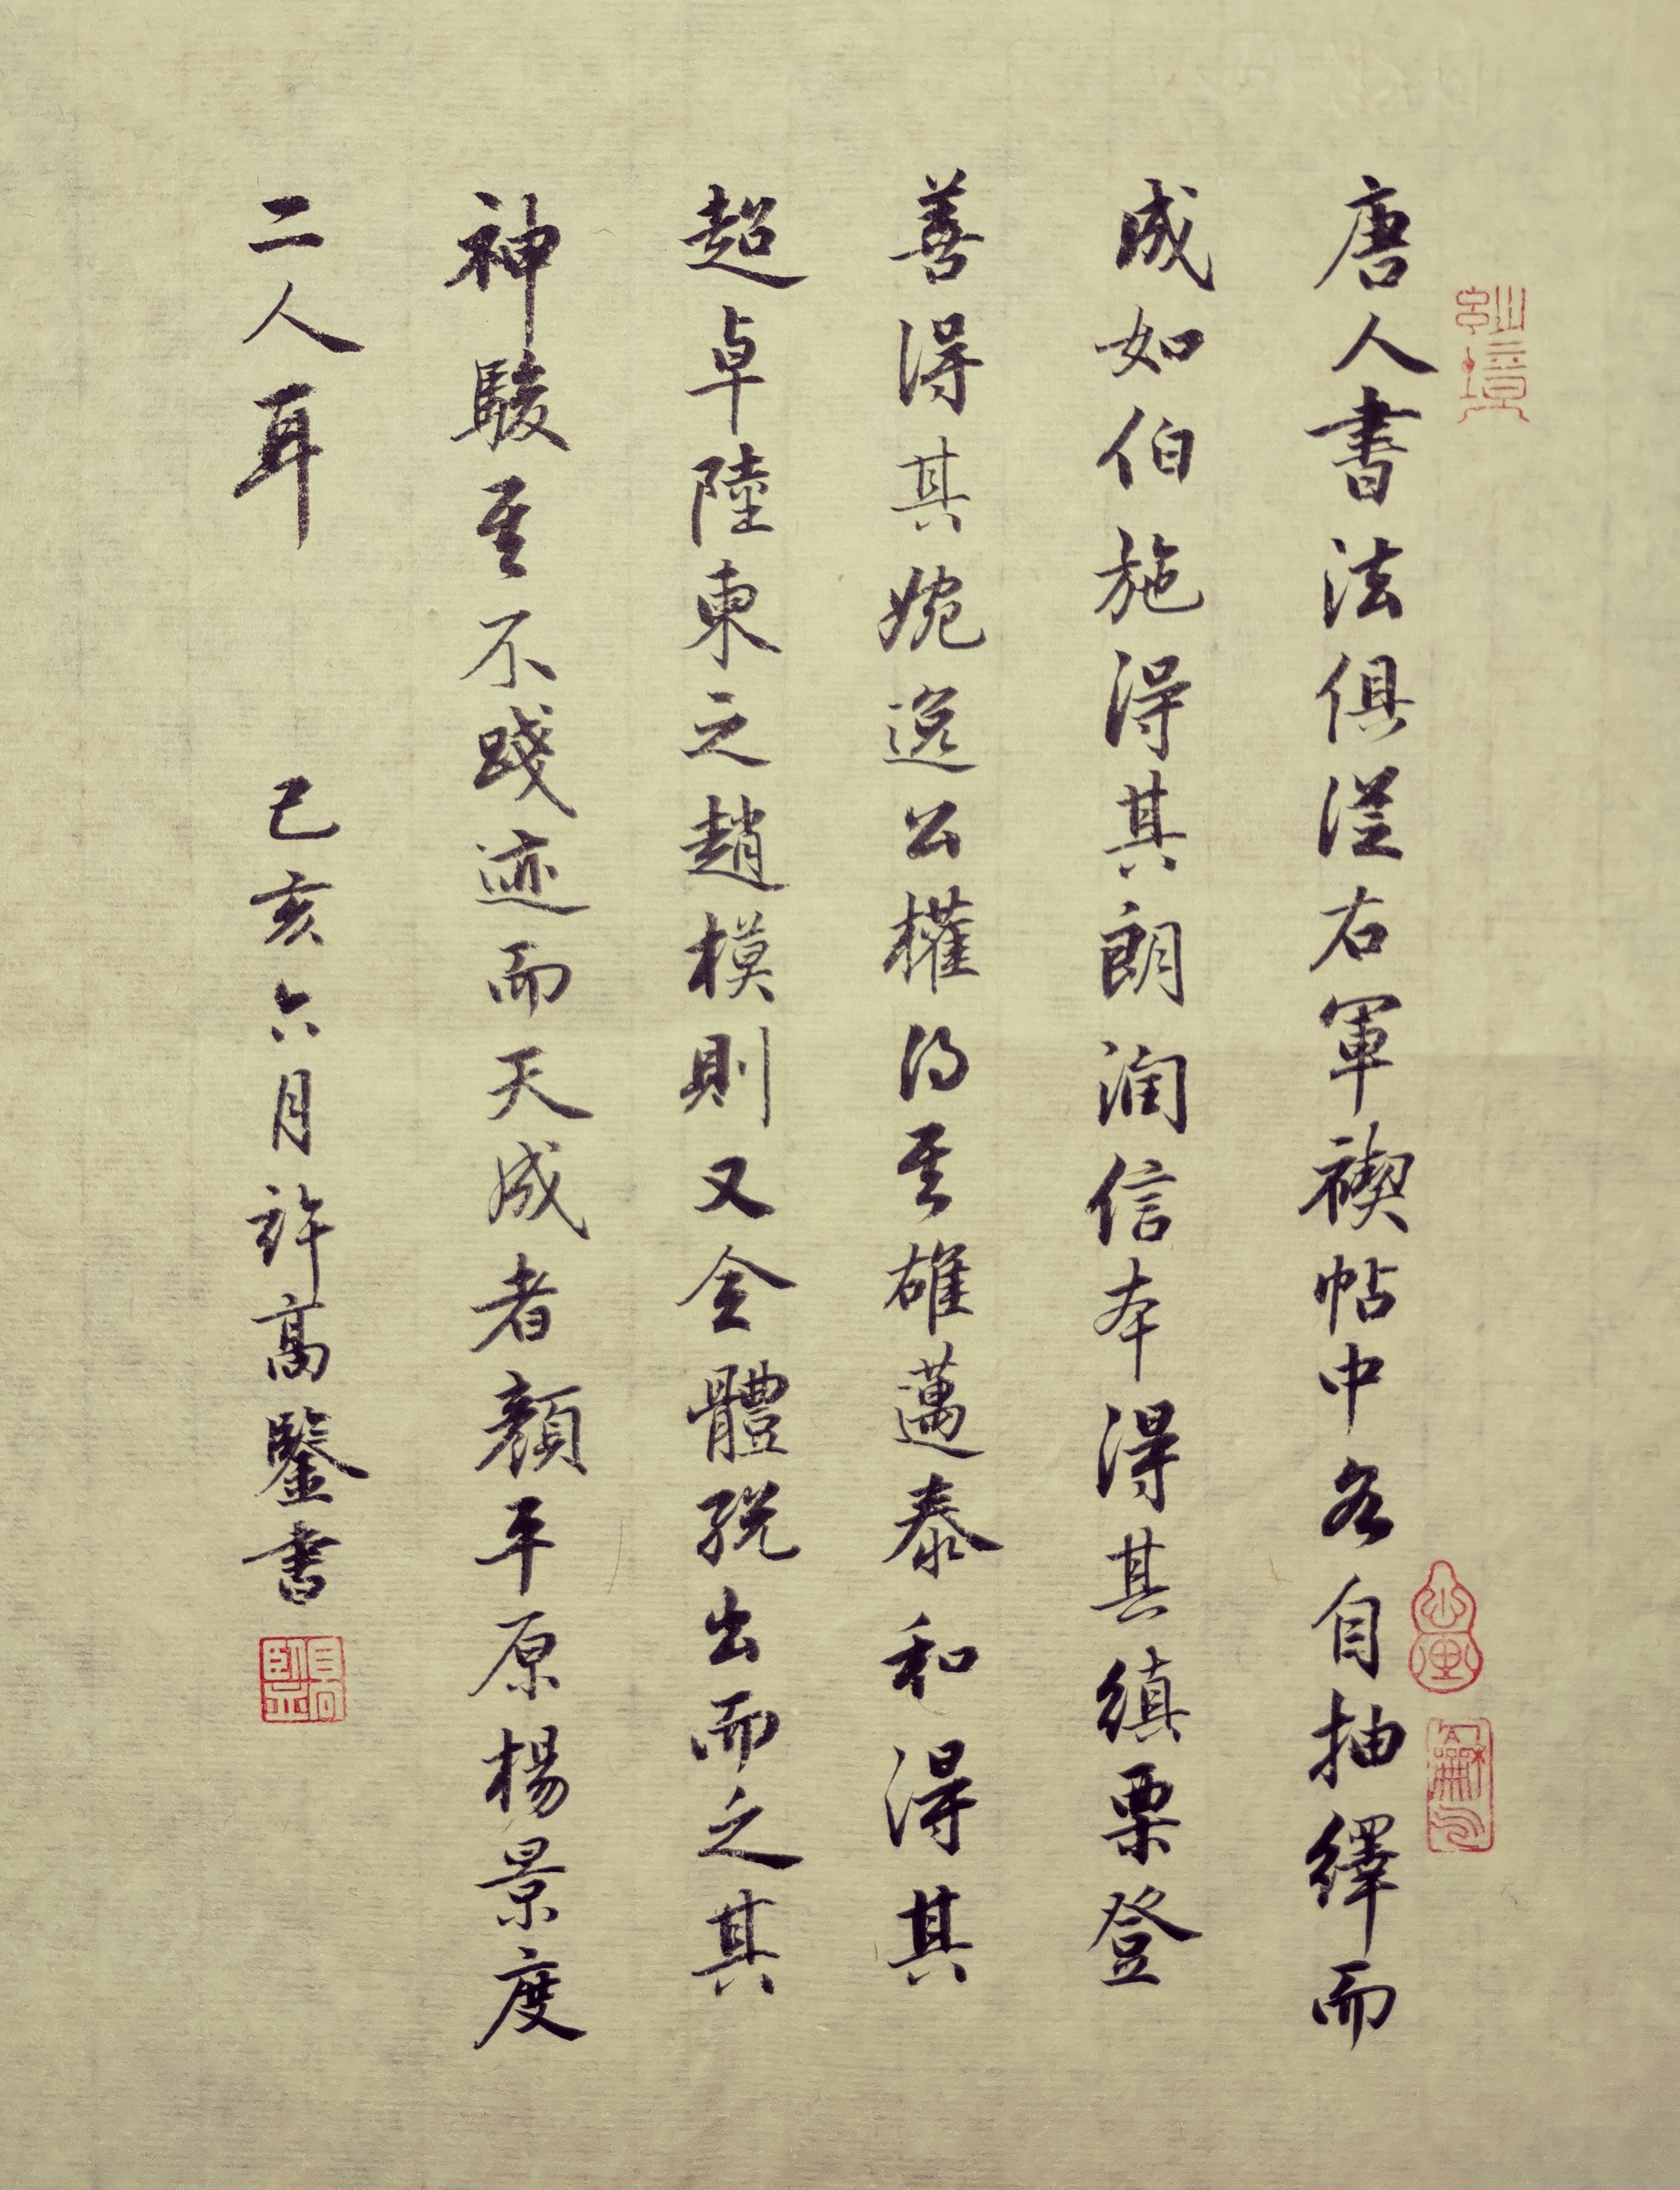 唐人書法俱從右軍禊帖中各自抽繹而
成如伯施得其朗潤信本得其縝栗登
善得其婉逸公權得其雄邁泰和得其
超卓陸柬之趙模則又全體脫出而之其
神駿其不踐迹而天成者顏平原楊景度
二人耳
己亥六月許高鑒書